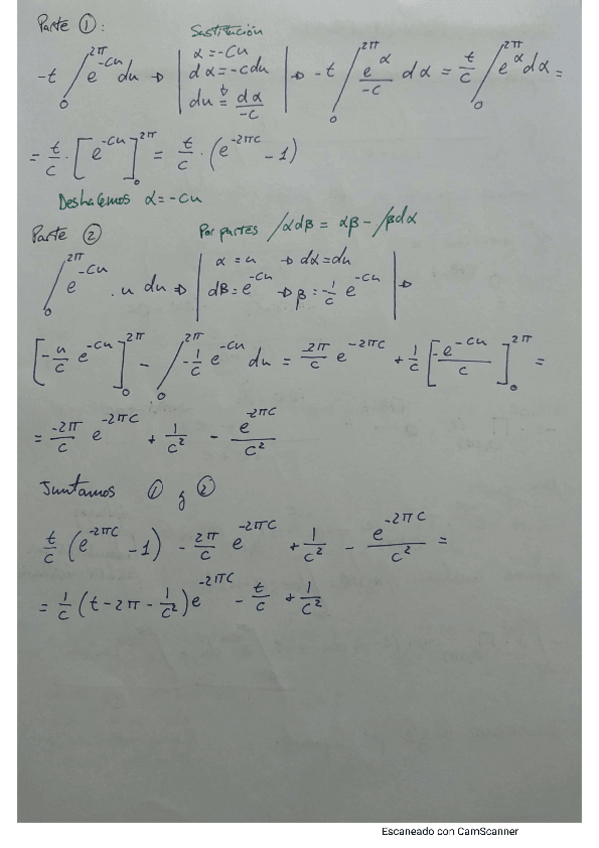 Parte ①:
Sustitución
-t ∫₀^{2π} e^{-cu} du → | α = -cu
dα = -c du
du = dα/-c | → -t ∫₀^{2π} e^α/-c dα = t/c ∫₀^{2π} e^α dα =
= t/c · [e^{-cu}]₀^{2π} = t/c · (e^{-2πc} - 1)
Deshacemos α = -cu
Parte ② Por partes ∫αdβ = αβ - ∫βdα
∫₀^{2π} e^{-cu} · u du ⇒ | α = u → dα = du
dβ = e^{-cu} → β = -1/c e^{-cu} | →
[-u/c e^{-cu}]₀^{2π} - ∫₀^{2π} -1/c e^{-cu} du = -2π/c e^{-2πc} + 1/c [-e^{-cu}/c]₀^{2π} =
= -2π/c e^{-2πc} + 1/c² - e^{-2πc}/c²
Juntamos ① y ②
t/c (e^{-2πc} - 1) - 2π/c e^{-2πc} + 1/c² - e^{-2πc}/c² =
= 1/c (t - 2π - 1/c²) e^{-2πc} - t/c + 1/c²
Escaneado con CamScanner